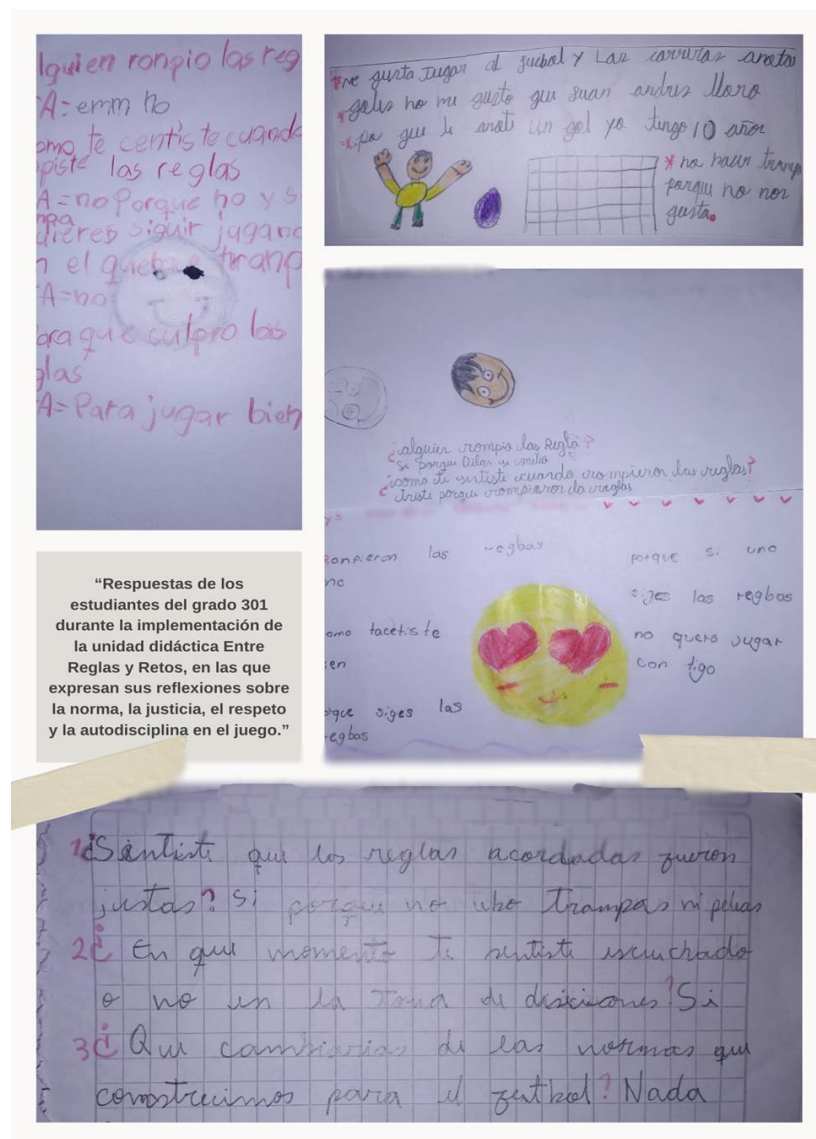 lguien ronpio las reg
A: emm no
omo te centiste cuando
piste las reglas
A = no Porque no y si
npa
uieres siguir jugand
n el que tranp
A=no
ara que culpro las
glas
A= Para jugar bien
*me gusta Jugar al fucbol y Las carreras anotar
*goles no me gusto que Juan andres lloro
*pa que le anote un gol yo tengo 10 años
* no hacer tramp
porque no nos
gusta.
¿alguien rompio las Regla?
Si porque Dilan se metio
¿como te sentiste cuando rompieron las reglas?
triste porque rompieron la reglas
Ronpieron las regbas
no
omo tacetiste
en
rque siges las
egbas
porque si uno
siges las regbas
no quero jugar
con tigo
“Respuestas de los
estudiantes del grado 301
durante la implementación de
la unidad didáctica Entre
Reglas y Retos, en las que
expresan sus reflexiones sobre
la norma, la justicia, el respeto
y la autodisciplina en el juego.”
1¿Sentiste que las reglas acordadas fueron
justas? Si porque no ubo trampas ni peleas
2¿ En que momento te sentiste escuchado
o no en la toma de disiciones? Si
3¿ Que cambiarias de las normas que
comstruimos para el futbol? Nada